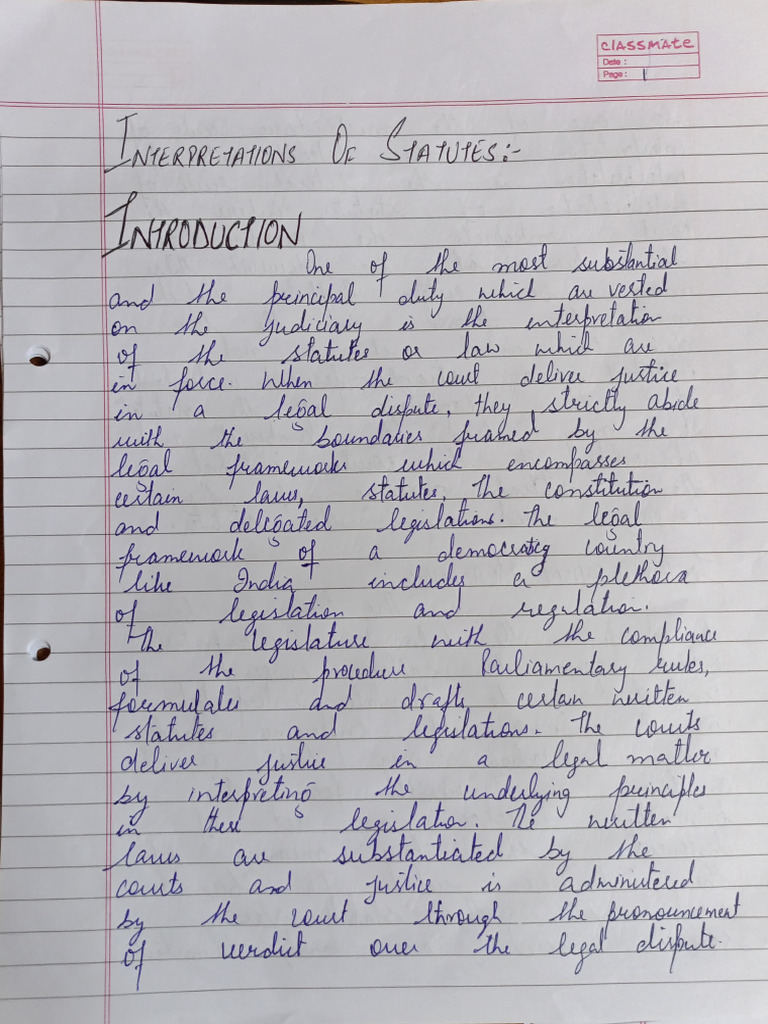 classmate
Date :
Page : 1
INTERPRETATIONS OF STATUTES:-
INTRODUCTION
One of the most substantial
and the principal duty which are vested
on the judiciary is the interpretation
of the statutes or law which are
in force. When the court deliver justice
in a legal dispute, they strictly abide
with the boundaries framed by the
legal frameworks which encompasses
certain laws, statutes, the constitution
and delegated legislations. The legal
framework of a democratic country
like India includes a plethora
of legislation and regulation.
The legislature with the compliance
of the procedure Parliamentary rules,
formulates and drafts certan written
statutes and legislations. The courts
deliver justice in a legal matter
by interpreting the underlying principles
in these legislation. The written
laws are substantiated by the
courts and justice is administered
by the court through the pronouncement
of verdict over the legal dispute.